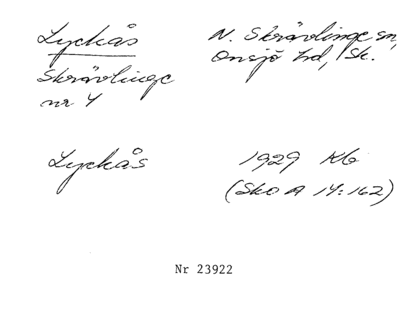 Lyckås
N. Skrävlinge sn,
Onsjö hd, Sk.
Skrävlinge
nr 4
Lyckås
1929 Kb
(Sko A 14:162)
Nr 23922